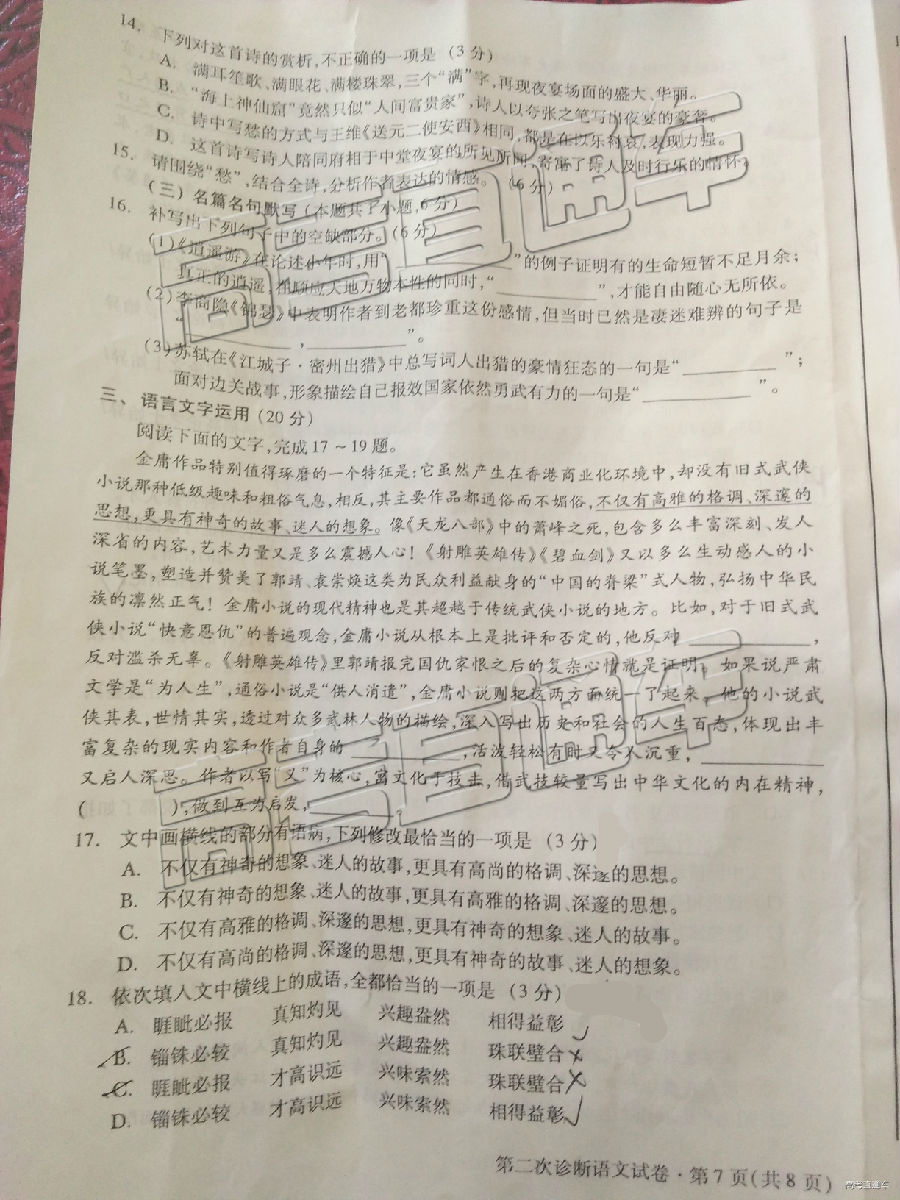 14. 下列对这首诗的赏析,不正确的一项是 (3 分)
A. 满耳笙歌、满眼花、满楼珠翠,三个“满”字,再现夜宴场面的盛大、华丽。
B. “海上神仙窟”竟然只似“人间富贵家”,诗人以夸张之笔写出夜宴的豪奢。
C. 诗中写愁的方式与王维《送元二使安西》相同,都是在以乐衬哀,表现力强。
D. 这首诗写诗人陪同府相于中堂夜宴的所见所闻,寄寓了诗人及时行乐的情怀。
15. 请围绕“愁”,结合全诗,分析作者表达的情感。(6 分)
(三) 名篇名句默写 (本题共1小题,6 分)
16. 补写出下列句子中的空缺部分。(6 分)
(1)《逍遥游》在论述小年时,用“ ”的例子证明有的生命短暂不足月余;
真正的逍遥 顺应天地万物本性的同时,“ ”,才能自由随心无所依。
(2) 李商隐《锦瑟》中表明作者到老都珍重这份感情,但当时已然是凄迷难辨的句子是
“ , ”。
(3) 苏轼在《江城子·密州出猎》中总写词人出猎的豪情狂态的一句是“ ”;
面对边关战事,形象描绘自己报效国家依然勇武有力的一句是“ ”。
三、语言文字运用 (20 分)
阅读下面的文字,完成 17～19 题。
金庸作品特别值得琢磨的一个特征是:它虽然产生在香港商业化环境中,却没有旧式武侠
小说那种低级趣味和粗俗气息,相反,其主要作品都通俗而不媚俗,不仅有高雅的格调、深邃的
思想,更具有神奇的故事、迷人的想象。像《天龙八部》中的萧峰之死,包含多么丰富深刻、发人
深省的内容,艺术力量又是多么震撼人心!《射雕英雄传》《碧血剑》又以多么生动感人的小
说笔墨,塑造并赞美了郭靖、袁崇焕这类为民众利益献身的“中国的脊梁”式人物,弘扬中华民
族的凛然正气! 金庸小说的现代精神也是其超越于传统武侠小说的地方。比如,对于旧式武
侠小说“快意恩仇”的普遍观念,金庸小说从根本上是批评和否定的,他反对 ,
反对滥杀无辜。《射雕英雄传》里郭靖报完国仇家恨之后的复杂心情就是证明。如果说严肃
文学是“为人生”,通俗小说是“供人消遣”,金庸小说则把这两方面统一了起来。他的小说武
侠其表,世情其实,透过对众多武林人物的描绘,深入写出历史和社会的人生百态,体现出丰
富复杂的现实内容和作者自身的 ,活泼轻松有时又令人沉重,
又启人深思。作者以写“义”为核心,富文化于技击,借武技较量写出中华文化的内在精神,
( ),做到互为启发, 。
17. 文中画横线的部分有语病,下列修改最恰当的一项是 (3 分)
A. 不仅有神奇的想象、迷人的故事,更具有高尚的格调、深邃的思想。
B. 不仅有神奇的想象、迷人的故事,更具有高雅的格调、深邃的思想。
C. 不仅有高雅的格调、深邃的思想,更具有神奇的想象、迷人的故事。
D. 不仅有高尚的格调、深邃的思想,更具有神奇的故事、迷人的想象。
18. 依次填入文中横线上的成语,全都恰当的一项是 (3 分)
A. 睚眦必报 真知灼见 兴趣盎然 相得益彰
B. 锱铢必较 真知灼见 兴趣盎然 珠联璧合
C. 睚眦必报 才高识远 兴味索然 珠联璧合
D. 锱铢必较 才高识远 兴味索然 相得益彰
第二次诊断语文试卷·第 7 页(共 8 页)
高考直通车
高考直通车
高考直通车